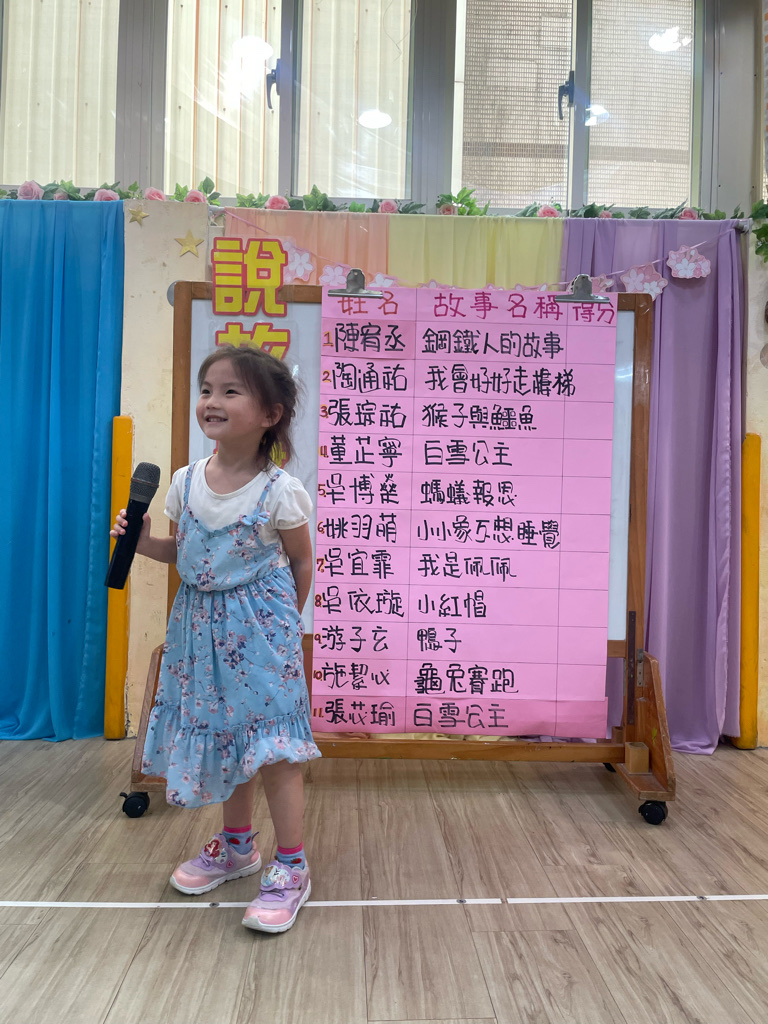 說故
姓名 故事名稱 得分
1.陳宥丞 鋼鐵人的故事
2.陶涌祐 我會好好走樓梯
3.張琮祐 猴子與鱷魚
4.董芷寧 白雪公主
5.吳博燊 螞蟻報恩
6.姚羽萌 小小象不想睡覺
7.吳宜霏 我是佩佩
8.吳依璇 小紅帽
9.游子玄 鴨子
10.施絜心 龜兔賽跑
11.張芯瑜 白雪公主